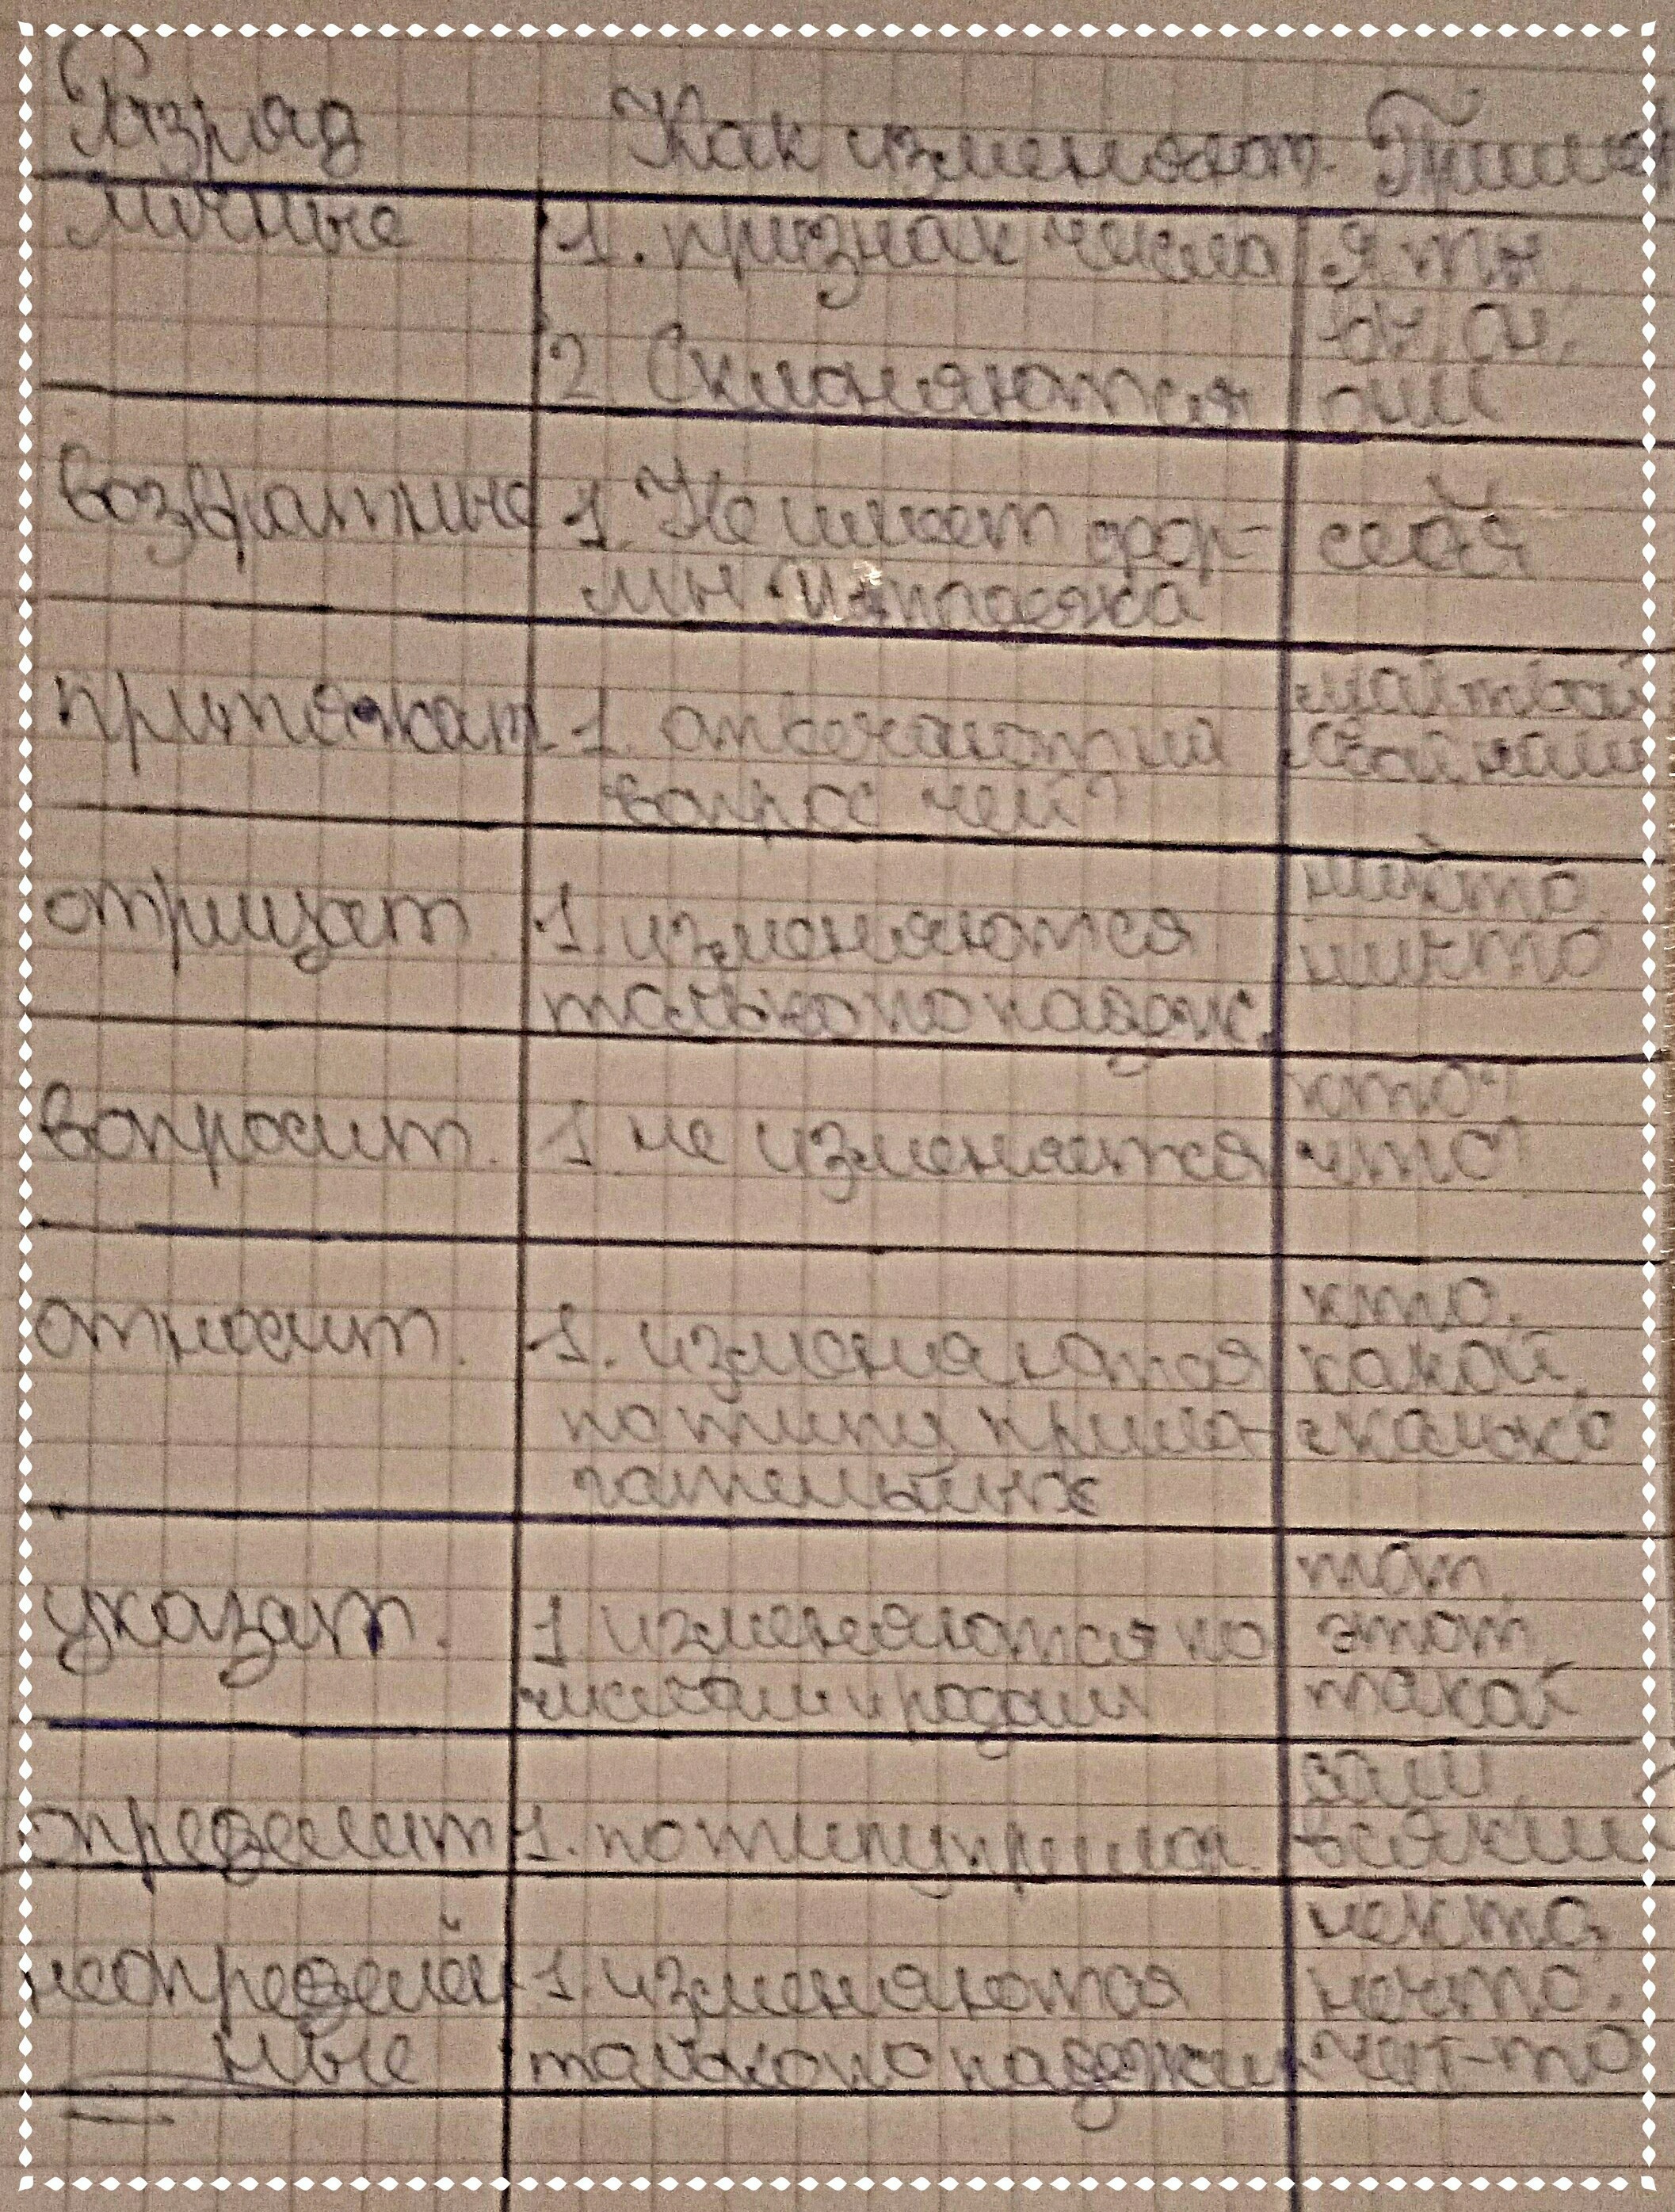 Разряд Как изменяют. Приме
личные 1. признак числа я, ты,
он,
2. Склоняются они
возвратные 1. Не имеет фор- себя
мы И. падежа
притяжат. 1. отвечают на мой твой
вопрос чей? свой, наш
отрицат. 1. изменяются никто
только по падеж. ничто
вопросит. 1. не изменяется кто?
что?
относит. 1. изменяются кто,
какой,
по типу прила- сколько
гательных
указат. 1. изменяются по тот
этот
числам и родам такой
определит 1. по типу прилаг. сам
всякий
неопределён 1. изменяются некто,
нечто,
ные только по падежам чей-то